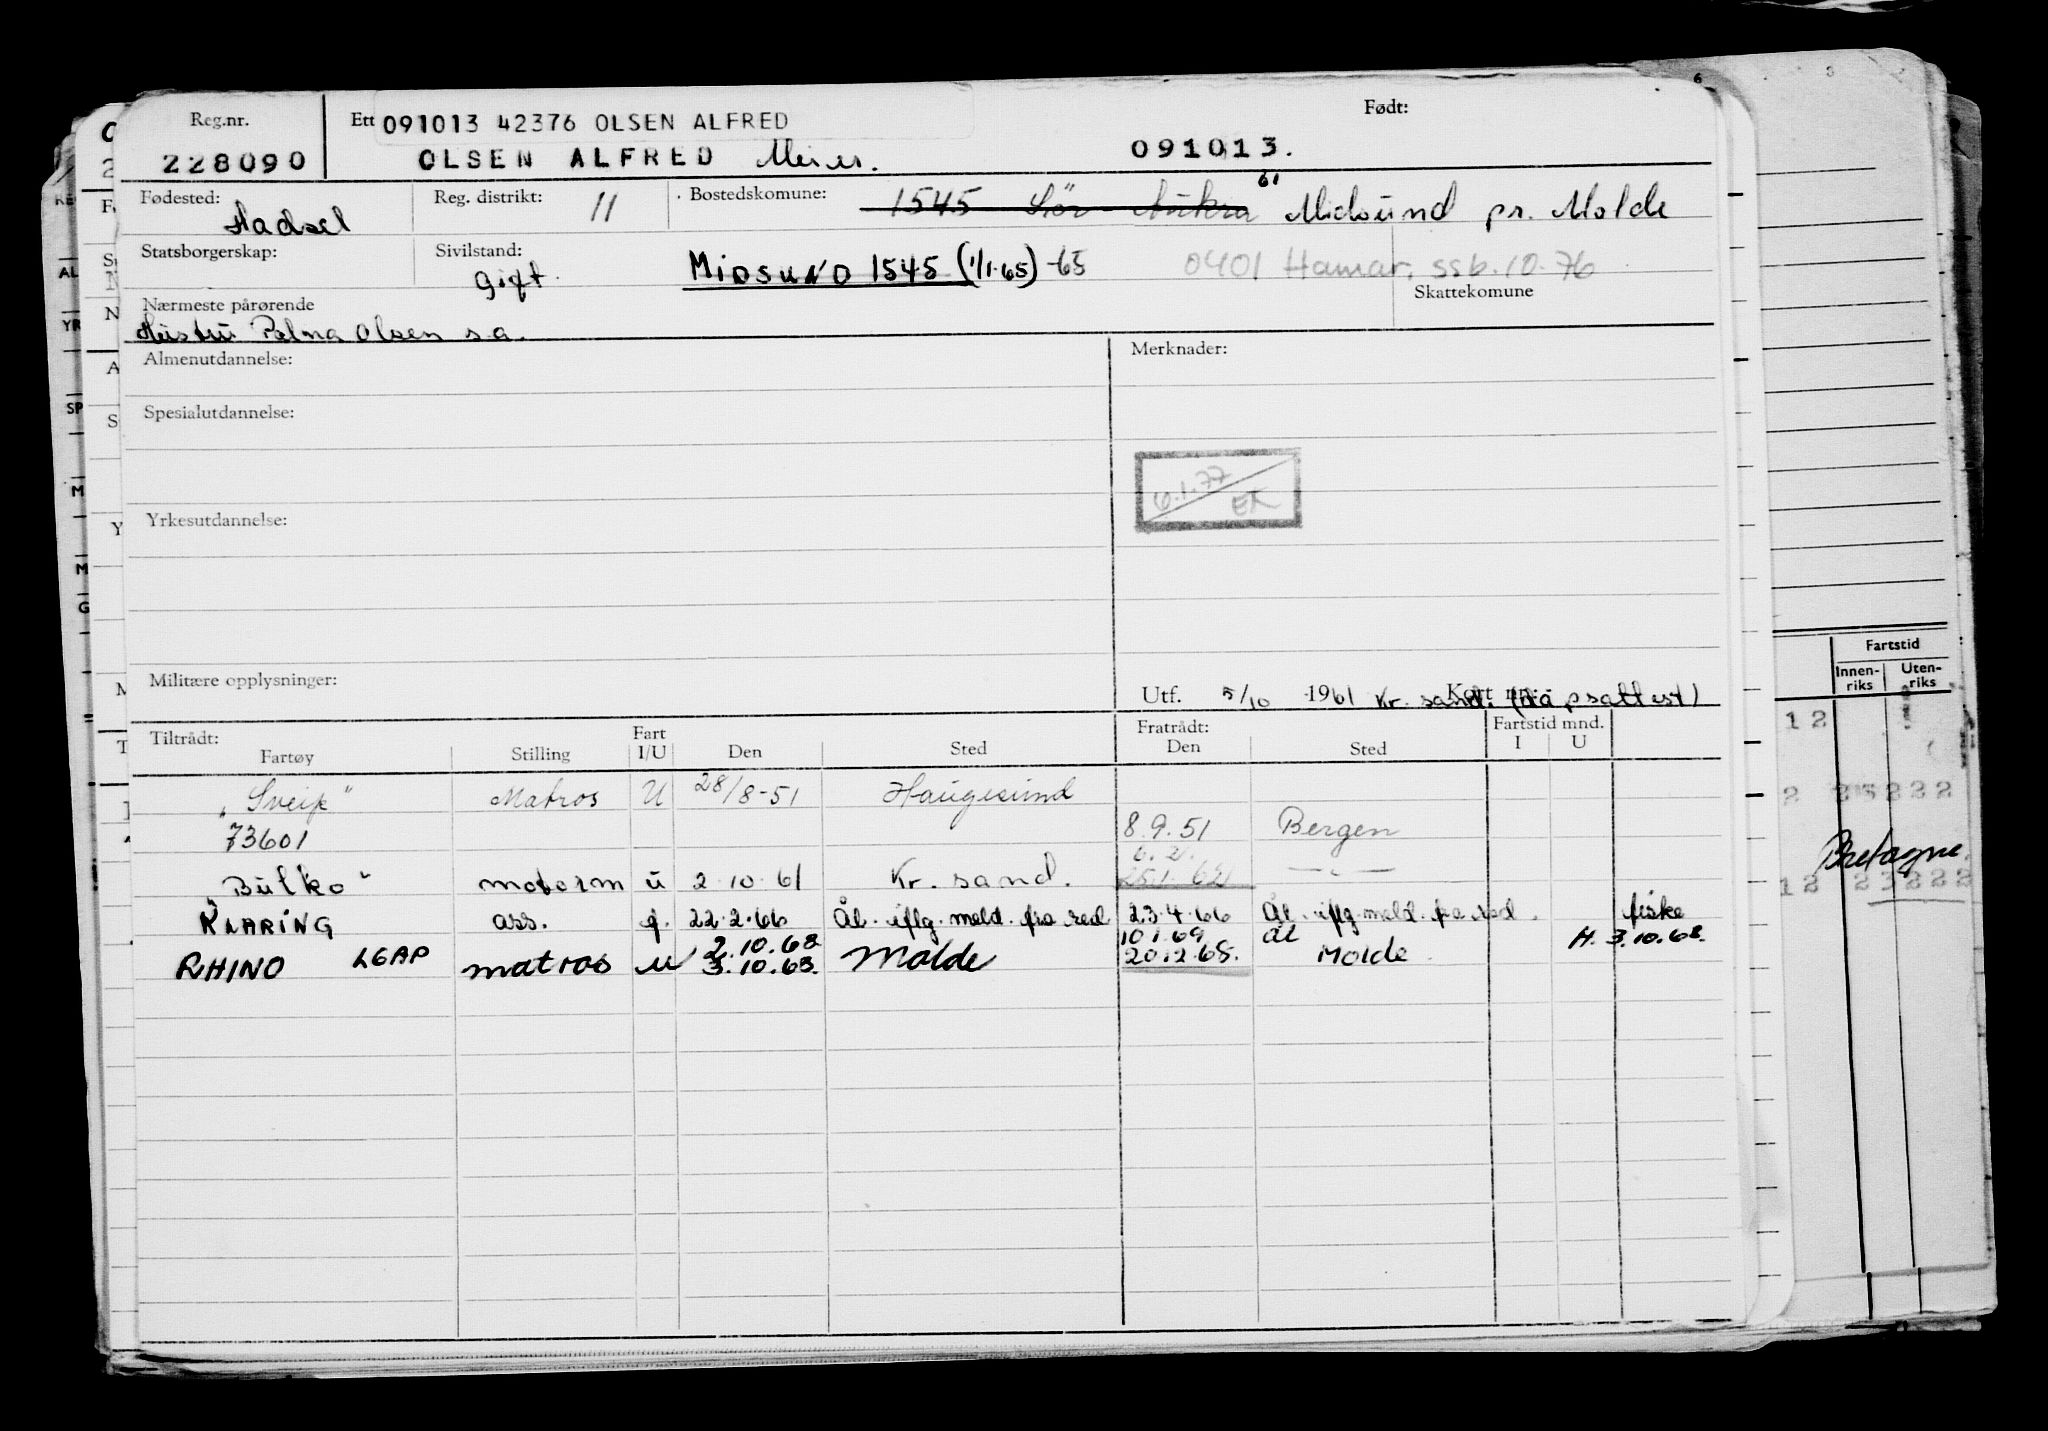 Reg.nr. Ett 091013 42376 OLSEN ALFRED Født:
228090 OLSEN ALFRED 091013.
Fødested: Hadsel Reg. distrikt: 11 Bostedskomune: 1545 Sör Aukra 61 Midsund pr. Molde
Statsborgerskap: Sivilstand: Gift. MIDSUND 1545 (1/1-65) -65 0401 Hamar, ssb. 10.76
Skattekomune
Nærmeste pårørende
Hustru Palma Olsen s.a.
Almenutdannelse: Merknader:
Spesialutdannelse:
6.1.77 EK
Yrkesutdannelse:
Militære opplysninger:
Utf. 5/10 1961 Kr. sand. (da psattest)
Tiltrådt: Fart Fratrådt: Fartstid mnd.
Fartøy Stilling I/U Den Sted Den Sted I U
"Sveip" Matros U 28/8-51 Haugesund
73601 8.9.51 Bergen
6.2.
"Bulko" motorm u 2.10.61 Kr. sand. 25.1.62 — " —
KLARING ass. f. 22.2.66 Ål. iflg. meld. fra red 23.4.66 Ål. iflg. meld. fra red. fiske
2.10.68 10.1.69 Ål H. 3.10.68.
RHINO LGAP matros u 3.10.68. Molde 20.12.68. Molde
Fartstid
Innen-riks Uten-riks
12
Bretagne.
12 23222